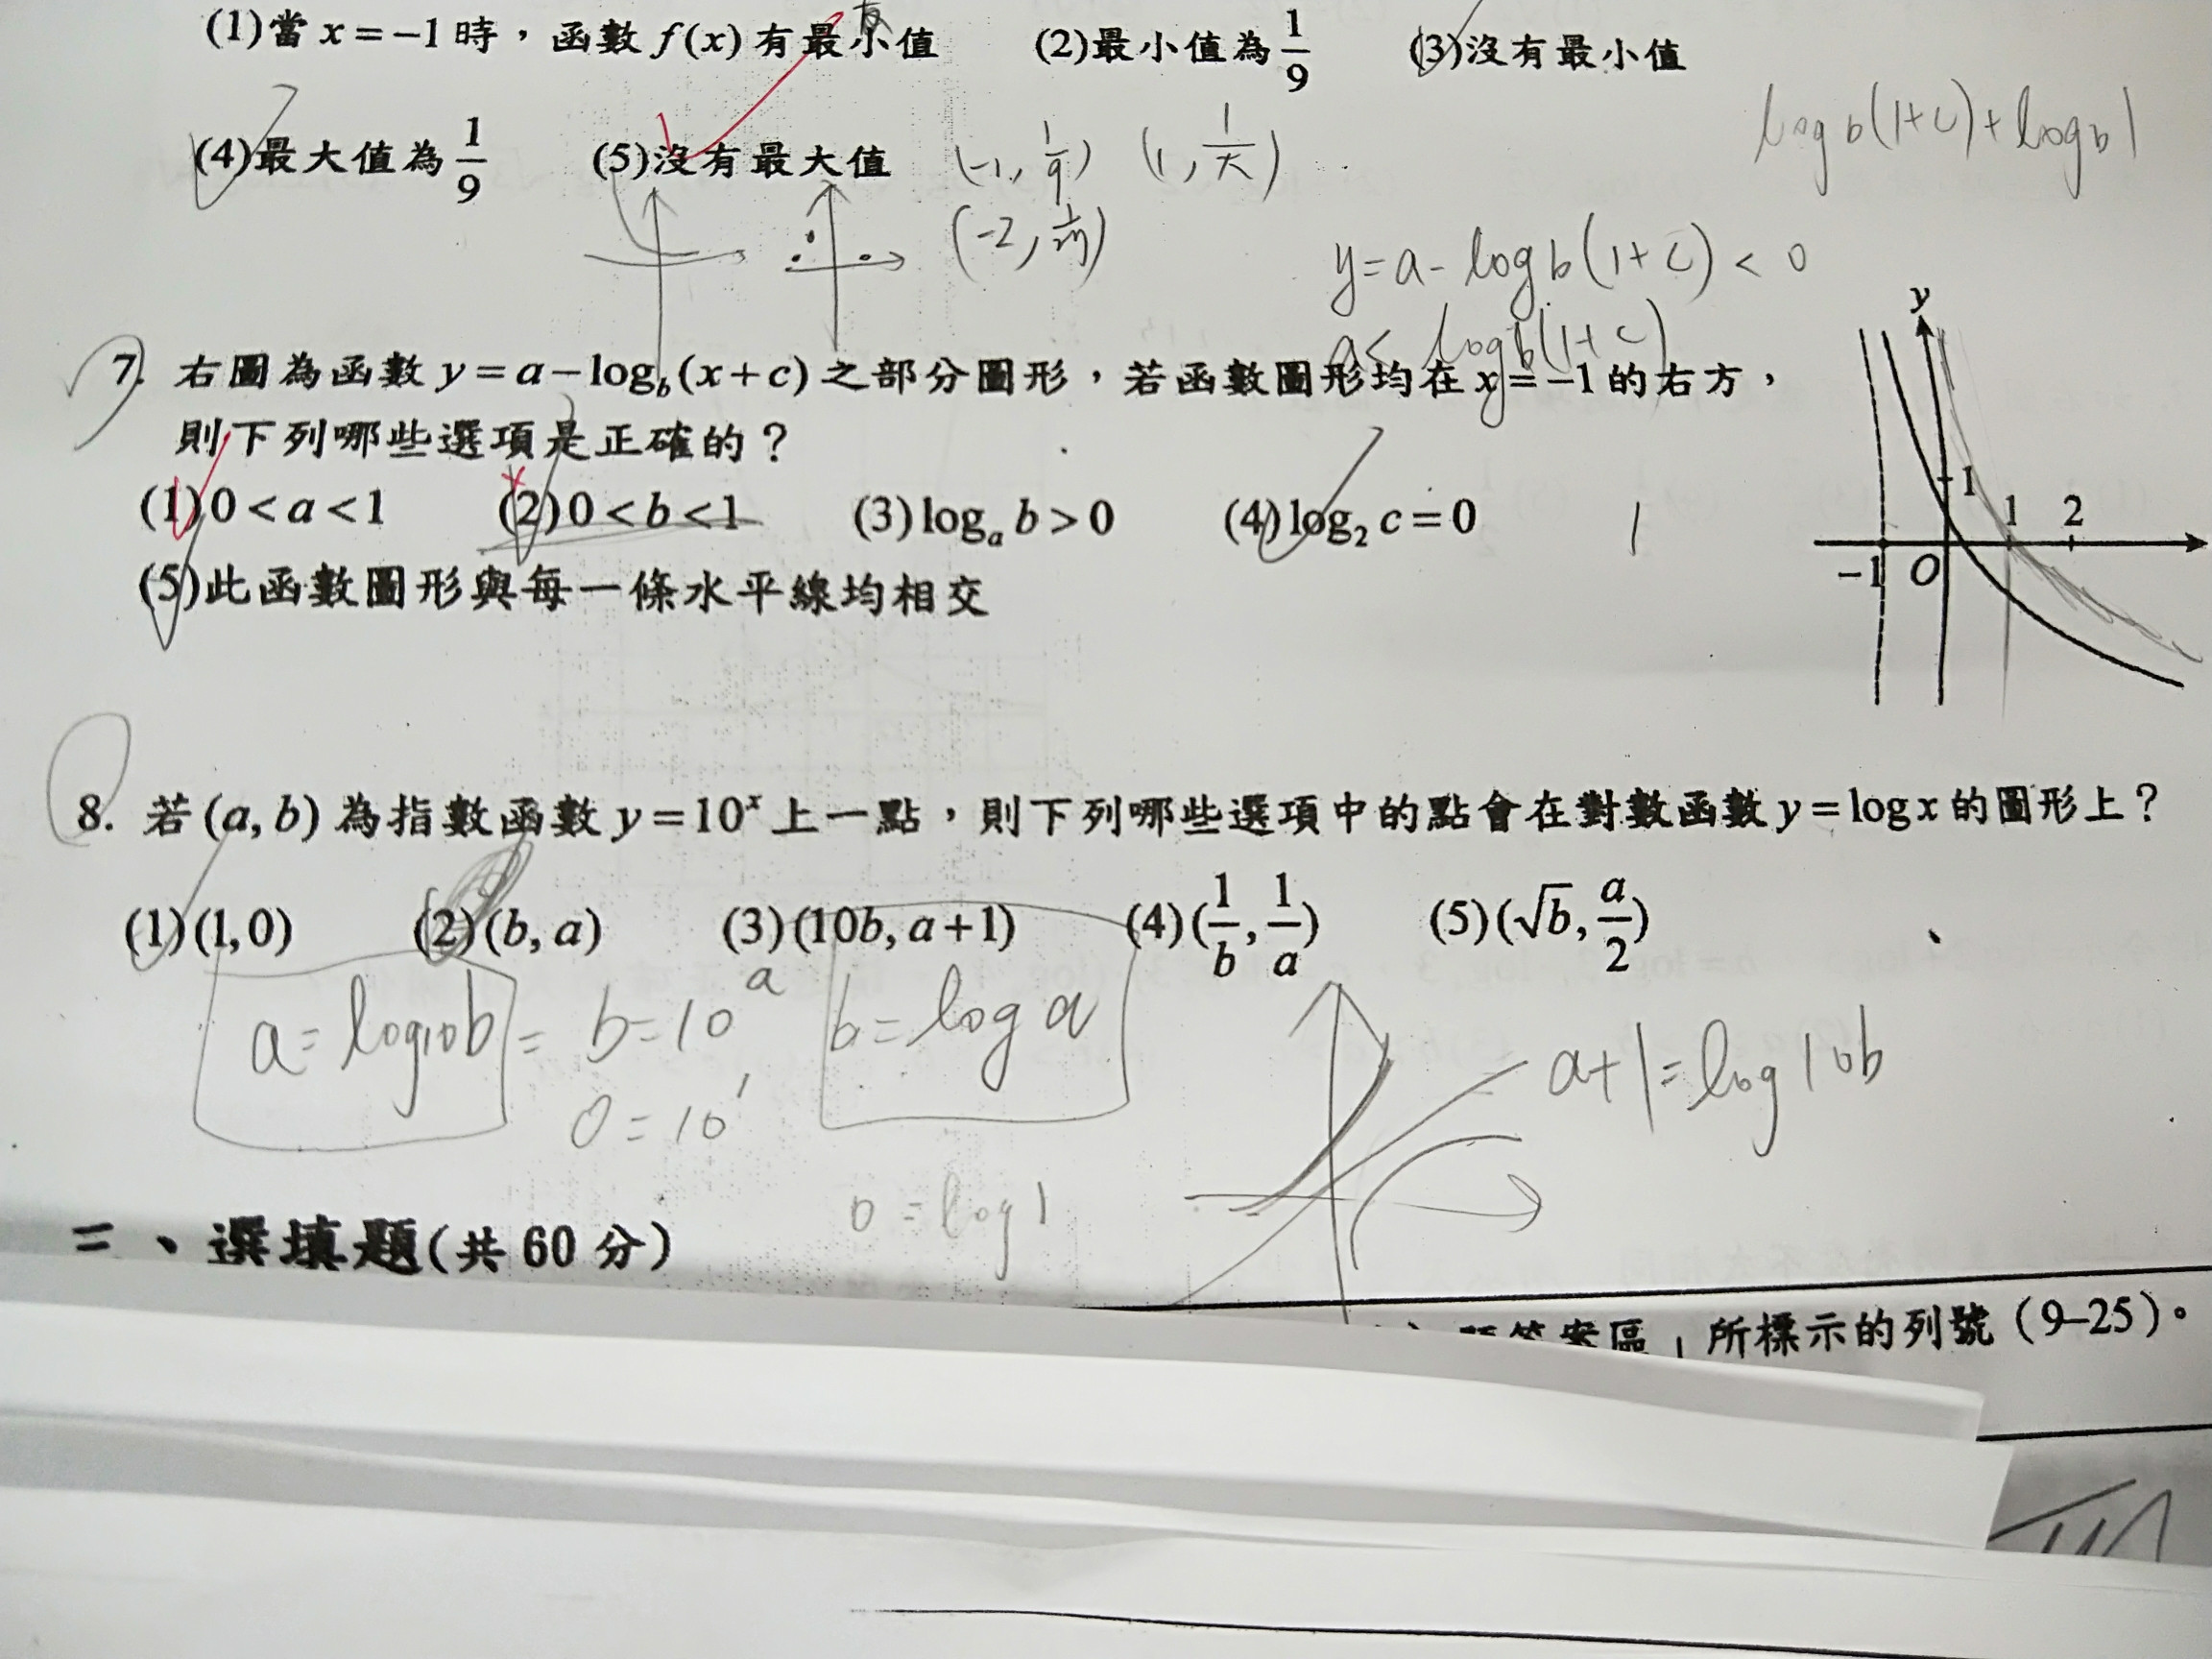 (1)當 x = −1 時，函數 f(x) 有最小值 (2)最小值為 1/9 (3)沒有最小值
log b(1+c)+log b 1
(4)最大值為 1/9 (5)沒有最大值 (-1, 1/9) (1, 1/π)
y=a- log b(1+c) < 0
a< log b(1+c)
y
7. 右圖為函數 y = a − log_b (x + c) 之部分圖形，若函數圖形均在 x = −1 的右方，
則下列哪些選項是正確的？
(1) 0 < a < 1 (2) 0 < b < 1 (3) log_a b > 0 (4) log_2 c = 0
1
1 1 2
−1 O
(5)此函數圖形與每一條水平線均相交
8. 若 (a, b) 為指數函數 y = 10^x 上一點，則下列哪些選項中的點會在對數函數 y = log x 的圖形上？
(1) (1, 0) (2) (b, a) (3) (10b, a + 1) (4) (1/b, 1/a) (5) (√b, a/2)
a= log10b = b=10^a b= log a
0=10^1
a+1= log 10b
0 = log 1
二、選填題(共 60 分)
答案區」所標示的列號（9–25）。